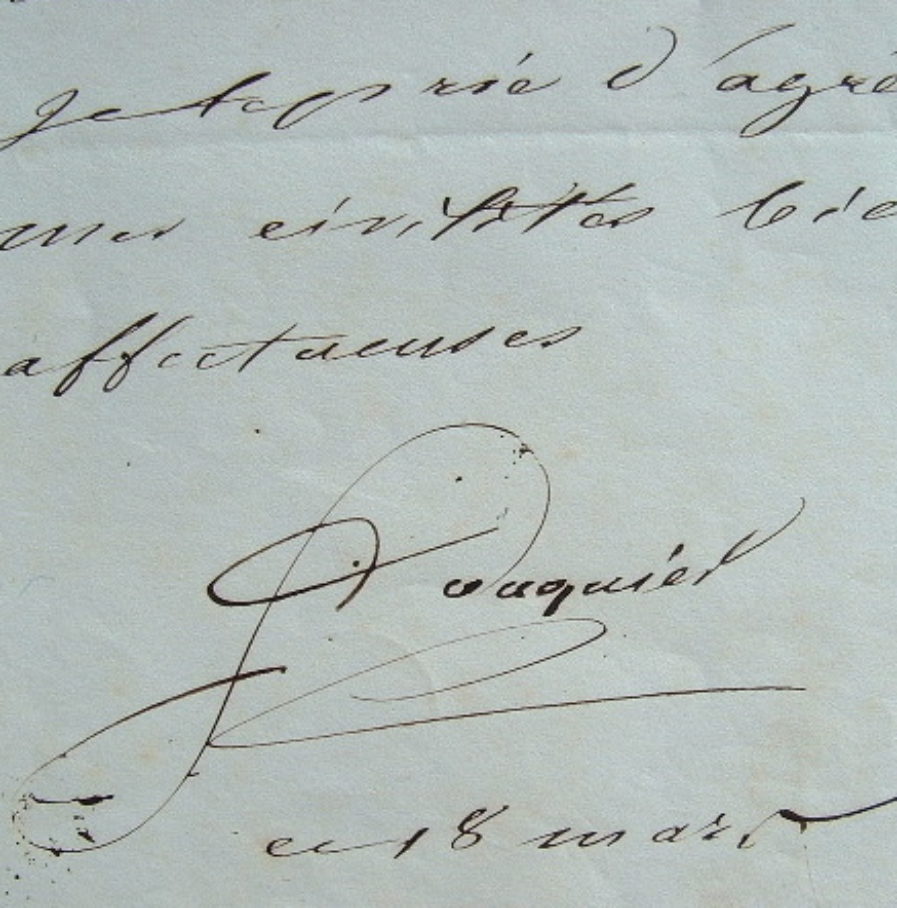 Je te prie d'agré
mes civilités bie
affectueuses
ce 18 mars